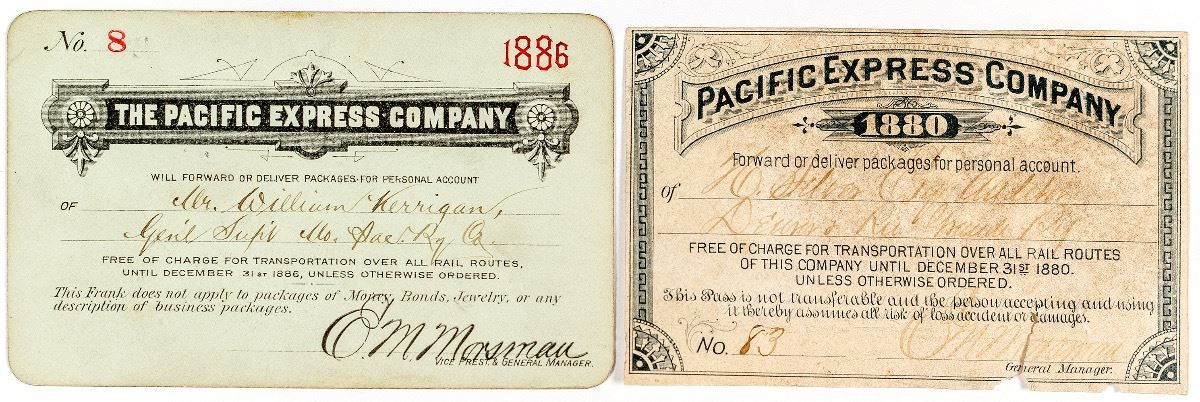 No. 8
1886
THE PACIFIC EXPRESS COMPANY
WILL FORWARD OR DELIVER PACKAGES FOR PERSONAL ACCOUNT
OF Mr. William Kerrigan,
Gen'l Sup't Mo. Pac. Ry Co.
FREE OF CHARGE FOR TRANSPORTATION OVER ALL RAIL ROUTES,
UNTIL DECEMBER 31st 1886, UNLESS OTHERWISE ORDERED.
This Frank does not apply to packages of Money, Bonds, Jewelry, or any
description of business packages.
E M Morsman
VICE PREST. & GENERAL MANAGER.
PACIFIC EXPRESS COMPANY
1880
Forward or deliver packages for personal account.
of
Denver & Rio Grande Ry
FREE OF CHARGE FOR TRANSPORTATION OVER ALL RAIL ROUTES
OF THIS COMPANY UNTIL DECEMBER 31st 1880.
UNLESS OTHERWISE ORDERED.
This Pass is not transferable and the person accepting and using
it thereby assumes all risk of loss accident or damages.
No. 83
General Manager.